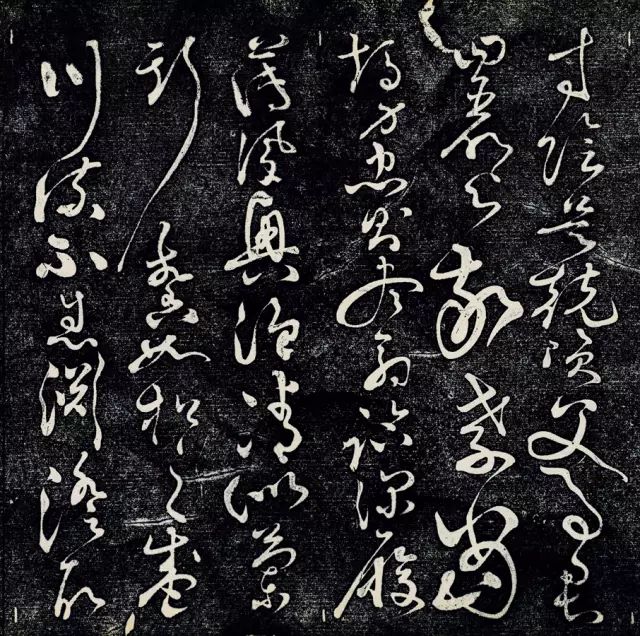 寸陰是競資父事君
曰嚴與敬孝當
竭力忠則盡命臨深履
薄夙興溫凊似蘭
斯馨如松之盛
川流不息淵澄取